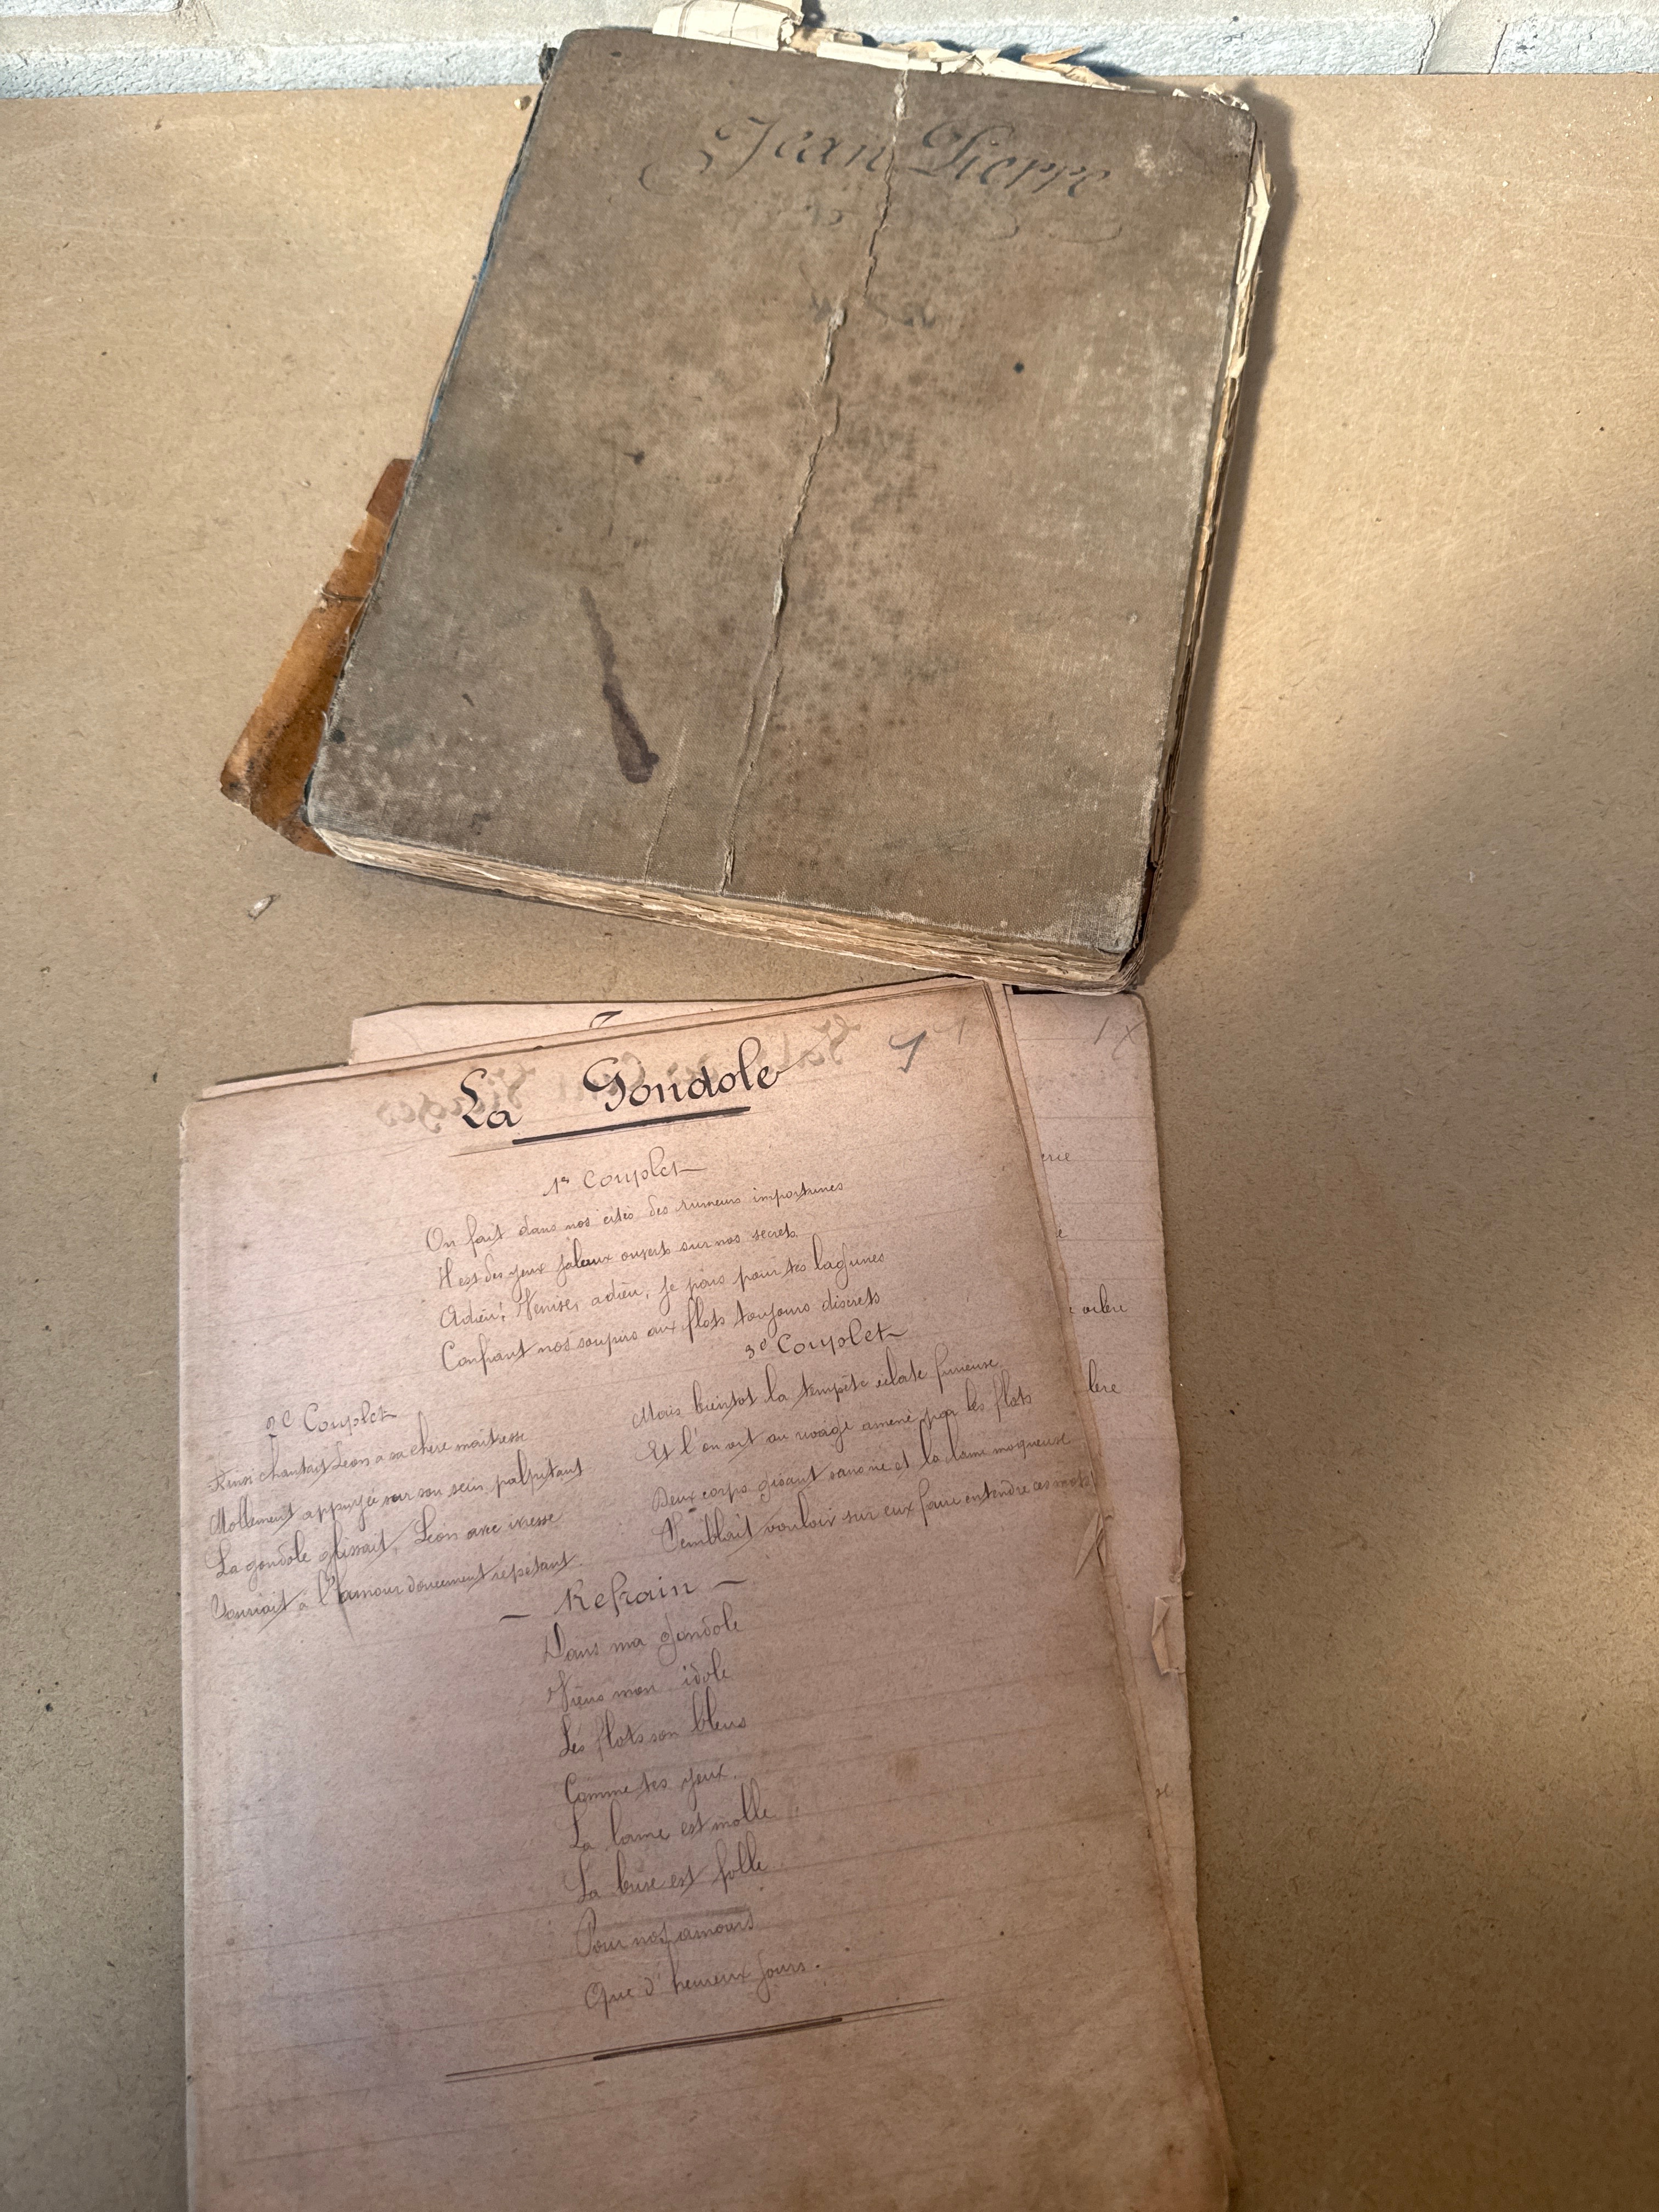 Jean Pierre
La Gondole
1er Couplet
On fait dans nos cités des rumeurs importunes
Il est des yeux jaloux ouverts sur nos secrets
Adieu! Venise, adieu, je pars pour tes lagunes
Confiant nos soupirs aux flots toujours discrets
2e Couplet
Ainsi chantait Léon a sa chère maitresse
Mollement appuyée sur son sein palpitant
La gondole glissait, Léon avec ivresse
Souriait a l'amour doucement répétant
3e Couplet
Mais bientot la tempête eclate furieuse
Et l'on vit au rivage amené par les flots
Deux corps gisant sans vie et la lame moqueuse
Semblait vouloir sur eux faire entendre ces mots
— Refrain —
Dans ma gondole
Viens mon idole
Les flots son bleus
Comme tes yeux.
La lame est molle
La brise est folle
Pour nos amours
Que d'heureux jours.